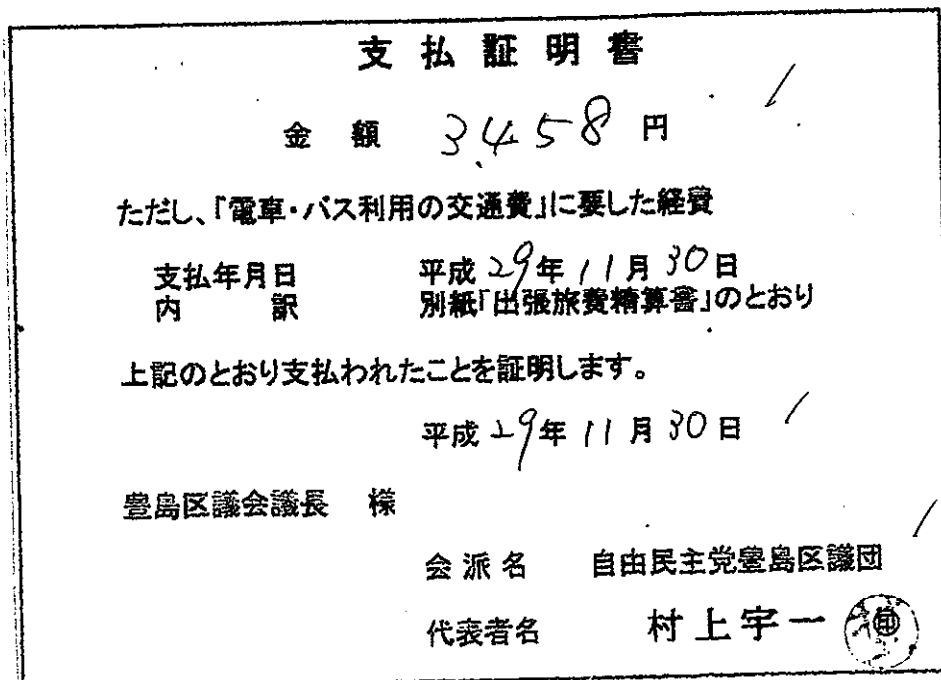 支払証明書
金額 3458 円
ただし、「電車・バス利用の交通費」に要した経費
支払年月日 平成29年11月30日
内訳 別紙「出張旅費精算書」のとおり
上記のとおり支払われたことを証明します。
平成29年11月30日
豊島区議会議長 様
会派名 自由民主党豊島区議団
代表者名 村上宇一 印